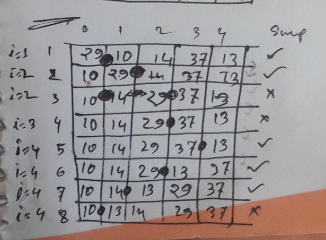 0 1 2 3 4 Swap
i=1 1 29 10 14 37 13 ✓
i=2 2 10 29 14 37 13 ✓
i=2 3 10 14 29 37 13 ×
i=3 4 10 14 29 37 13 ×
i=4 5 10 14 29 37 13 ✓
i=4 6 10 14 29 13 37 ✓
i=4 7 10 14 13 29 37 ✓
i=4 8 10 13 14 29 37 ×